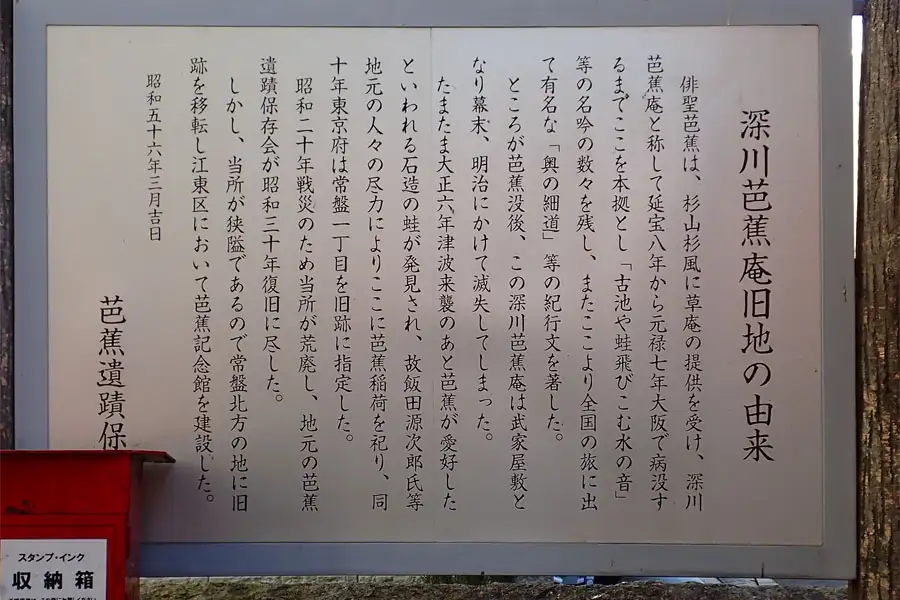 深川芭蕉庵旧地の由来
俳聖芭蕉は、杉山杉風に草庵の提供を受け、深川
芭蕉庵と称して延宝八年から元禄七年大阪で病没す
るまでここを本拠とし「古池や蛙飛びこむ水の音」
等の名吟の数々を残し、またここより全国の旅に出
て有名な「奥の細道」等の紀行文を著した。
ところが芭蕉没後、この深川芭蕉庵は武家屋敷と
なり幕末、明治にかけて滅失してしまった。
たまたま大正六年津波来襲のあと芭蕉が愛好した
といわれる石造の蛙が発見され、故飯田源次郎氏等
地元の人々の尽力によりここに芭蕉稲荷を祀り、同
十年東京府は常盤一丁目を旧跡に指定した。
昭和二十年戦災のため当所が荒廃し、地元の芭蕉
遺蹟保存会が昭和三十年復旧に尽した。
しかし、当所が狭隘であるので常盤北方の地に旧
跡を移転し江東区において芭蕉記念館を建設した。
昭和五十六年三月吉日
芭蕉遺蹟保
スタンプ・インク
収納箱